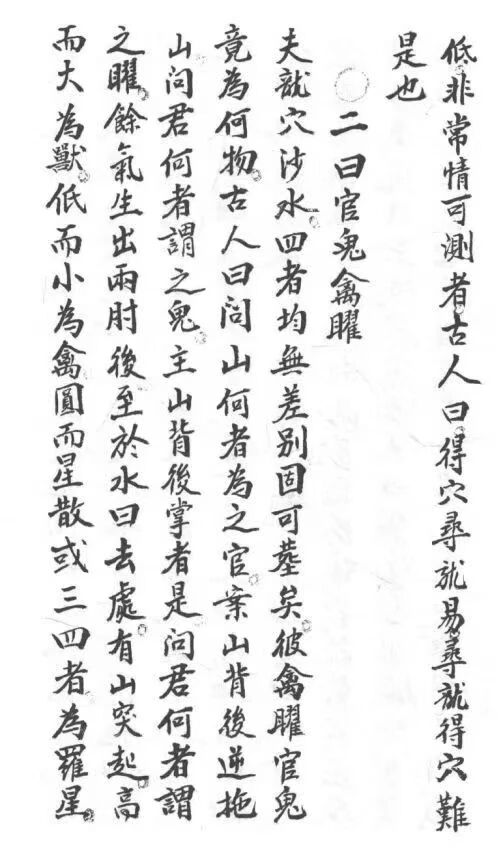 低非常情可測者古人曰得穴尋龍易尋龍得穴難
是也
二曰官鬼禽曜
夫龍穴沙水四者均無差别固可塟矣彼禽曜官鬼
竟為何物古人曰问山何者為之官案山背後逆拖
山问君何者謂之鬼主山背後掌者是问君何者謂
之曜餘氣生出兩肘後至於水曰去處有山突起高
而大為獸低而小為禽圓而星散或三四者為羅星